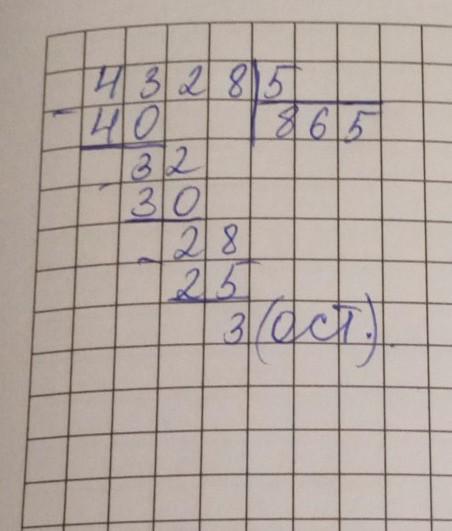 4328 5
- 40 865
- 32
30
- 28
25
3 (ОСТ.)